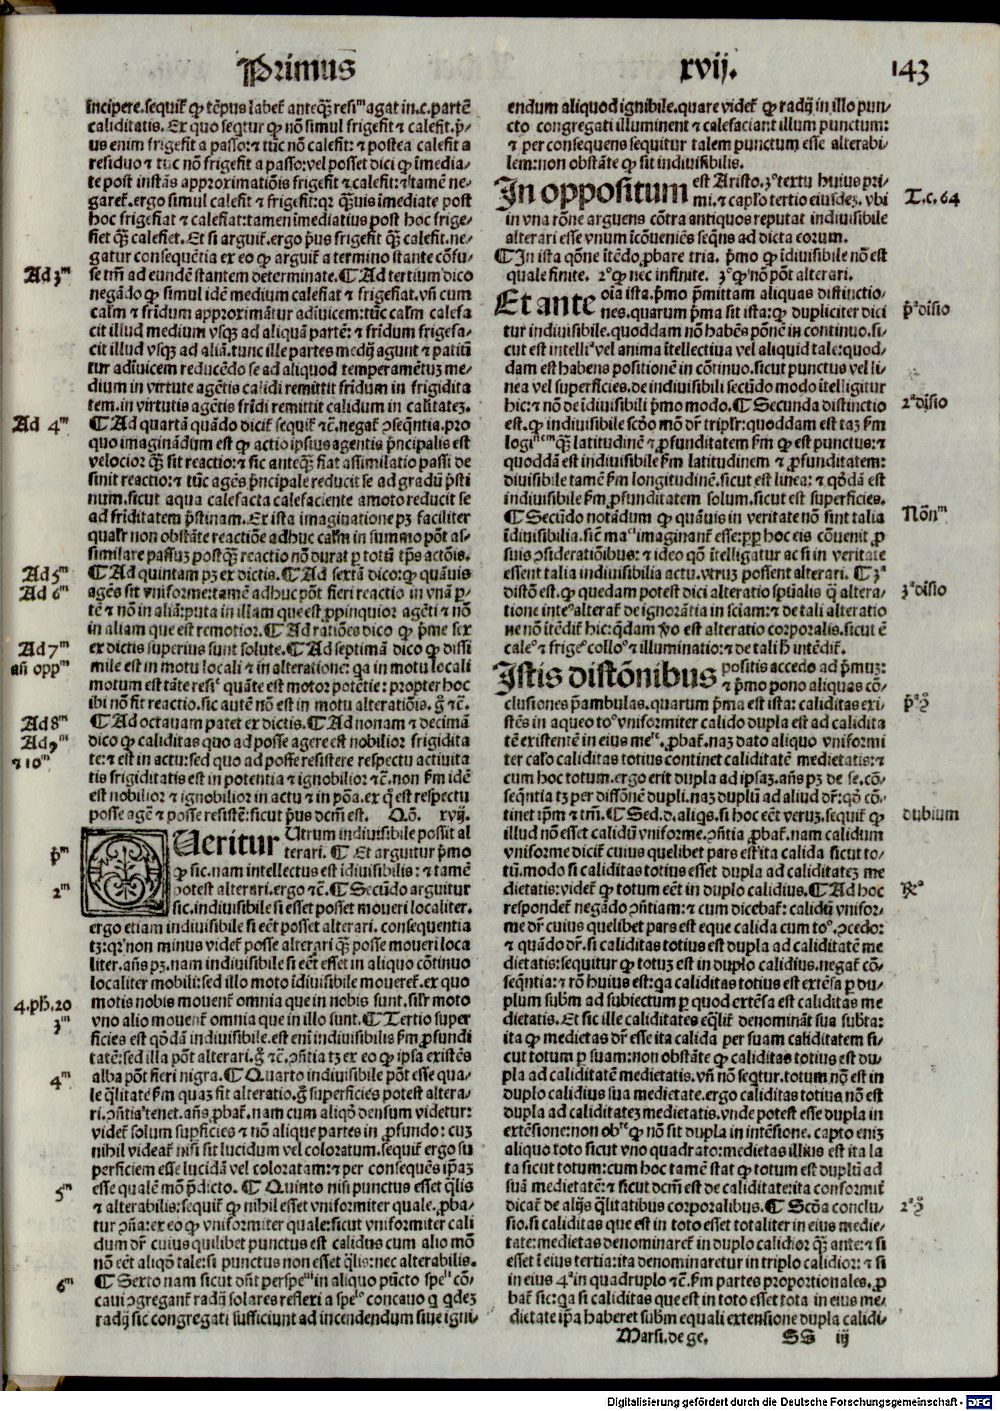 Primus
xvij.
143
incipere.sequiť qp tēpus labeť anteqȝ resiᵐ agat in.c.partē
caliditatis. Ex quo seqtur qp nō simul frigefit ⁊ calefit.p̄-
us enim frigefit a passo:⁊ tūc nō calefit: ⁊ postea calefit a
residuo ⁊ tūc nō frigefit a passo:vel posset dici qp īmedia-
te post instās approximatiōis frigefit ⁊ calefit:⁊ tamē ne-
gareť.ergo simul calefit ⁊ frigefit:qr qȝuis imediate post
hoc frigefiat ⁊ calefiat:tamen īmediatius post hoc frige-
fiet qȝ calefiet. Et si arguiť.ergo p̄us frigefit qȝ calefit.ne-
gatur consequētia ex eo qp arguiť a termino stante cōfu-
se tm̄ ad eundē stantem determinate. ¶ Ad tertium dico
negādo qp simul idē medium calefiat ⁊ frigefiat.vn̄ cum
caľm ⁊ fridum approximātur adiuicem:tūc caľm calefa
cit illud medium vsqȝ ad aliquā partē: ⁊ fridum frigefa-
cit illud vsqȝ ad aliā.tunc ille partes medij agunt ⁊ patiūt
tur adiuicem reducēdo se ad aliquod temperamētuȝ me-
dium in virtute agētis calidi remittit fridum in frigidita
tem.in virtutis agētis fridi remittit calidum in calitateȝ.
¶ Ad quartā quādo diciť sequiť ⁊c̄.negať ɔseqntia.pro
quo imaginādum est qp actio ipsius agentis p̄ncipalis est
velocior qȝ sit reactio:⁊ sic anteqȝ fiat assimilatio passi de
sinit reactio:⁊ tūc agēs p̄ncipale reducit se ad gradū p̄sti
num.sicut aqua calefacta calefaciente amoto reducit se
ad friditatem p̄stinam. Ex ista imaginatione pȝ faciliter
qualr non obstāte reactiōe adhuc caľm in summo pōt as-
similare passuȝ postqȝ reactio nō durat p totū tp̄s actōis.
¶ Ad quintam pȝ ex dictis. ¶ Ad sextā dico: qp quāuis
agēs sit vniforme:tamē adhuc pōt fieri reactio in vnā p̄-
tē ⁊ nō in aliā: puta in illam que est ppinquior agēti ⁊ nō
in aliam que est remotior. ¶ Ad ratiōes dico qp p̄me sex
ex dictis superius sunt solute. ¶ Ad septimā dico qp dissi
mile est in motu locali ⁊ in alteratione: qa in motu locali
motum est tāte resiᵉ quāte est motor potētie: propter hoc
ibi nō fit reactio.sic autē nō est in motu alteratiōis.ḡ ⁊c̄.
¶ Ad octauam patet ex dictis. ¶ Ad nonam ⁊ decimā
dico qp caliditas quo ad posse agere est nobilior frigidita
te: ⁊ est in actu:sed quo ad posse resistere respectu actiuita
tis frigiditatis est in potentia ⁊ ignobilior ⁊c̄.non fm idē
est nobilior ⁊ ignobilior in actu ⁊ in pōa.ex q̄ est respectu
posse agē ⁊ posse resistē:sicut p̄us dcm̄ est. Qō. xvij.
QUeritur Utrum indiuisibile possit al
terari. ¶ Et arguitur p̄mo
qp sic.nam intellectus est idiuisibilis: ⁊ tamē
potest alterari.ergo ⁊c̄. ¶ Secūdo arguitur
sic.indiuisibile si esset posset moueri localiter.
ergo etiam indiuisibile si eēt posset alterari. consequentia
tȝ:qr non minus videť posse alterari qȝ posse moueri loca
liter.an̄s pȝ.nam indiuisibile si eēt esset in aliquo cōtinuo
localiter mobili:sed illo moto īdiuisibile mouereť.ex quo
motis nobis moventť omnia que in nobis sunt.siľr moto
vno alio moventť omnia que in illo sunt. ¶ Tertio super
ficies est qōdā indiuisibile.est enī indiuisibilis fm pfundi
tatē:sed illa pōt alterari.ḡ ⁊c̄.ɔn̄tia tȝ ex eo qp ipsa existēs
alba pōt fieri nigra. ¶ Quarto indiuisibile pōt esse qua-
le qlitate fm quaȝ fit alteratio.ḡ superficies potest altera-
ri.ɔn̄tia tenet.an̄s pbať.nam cum aliqō densum videtur:
videť solum supficies ⁊ nō alique partes in pfundo: cuȝ
nihil videať nisi sit lucidum vel coloratum.sequiť ergo su
perficiem esse lucidā vel coloratam:⁊ per consequēs ip̄aȝ
esse qualē mō p̄dicto. ¶ Quinto nisi punctus esset qlis
⁊ alterabilis:sequiť qp nihil esset vniformiter quale.pba-
tur ɔn̄a:ex eo qp vniformiter quale:sicut vniformiter cali
dum dr̄ cuius quilibet punctus est calidus cum alio mō
nō eēt aliqō tale:si punctus non esset qlis:nec alterabilis.
¶ Sexto nam sicut dn̄t perspeᵐ in aliquo pūcto speˡⁱ cō-
caui ɔgreganť radij solares reflexi a speˡᵒ concauo q qdeȝ
radij sic congregati sufficiunt ad incendendum siue igni-
Ad 3ᵐ
Ad 4ᵐ
Ad 5ᵐ
Ad 6ᵐ
Ad 7ᵐ
an̄ oppᵐ
Ad 8ᵐ
Ad 9ᵐ
⁊ 10ᵐ
p̄ᵐ
2ᵐ
4.ph̄.20
3ᵐ
4ᵐ
5ᵐ
6ᵐ
endum aliquod ignibile.quare videť qp radij in illo pun-
cto congregati illuminent ⁊ calefaciant illum punctum:
⁊ per consequens sequitur talem punctum esse alterabi-
lem:non obstāte qp sit indiuisibilis.
In oppositum est Aristo.3° textu huius pri-
mi.⁊ caplo tertio eiusdeȝ. vbi
in vna rōne arguens cōtra antiquos reputat indiuisibile
alterari esse vnum īcōueniēs seqn̄s ad dicta eorum.
¶ In ista qōne ītēdo pbare tria. p̄mo qp īdiuisibile nō est
quale finite. 2° qp nec infinite. 3° qp nō pōt alterari.
Et ante oīa ista.p̄mo p̄mittam aliquas distinctio-
nes.quarum p̄ma sit ista: qp dupliciter dici
tur indiuisibile.quoddam nō habēs pōnē in continuo.si-
cut est intelliˢ vel anima ītellectiua vel aliquid tale:quod-
dam est habens positionē in cōtinuo.sicut punctus vel li-
nea vel superficies.de indiuisibili secūdo modo ītelligitur
hic:⁊ nō de īdiuisibili p̄mo modo. ¶ Secunda distinctio
est.qp indiuisibile scdo mō dr̄ tripľr:quoddam est taȝ fm
longiⁿᵉᵐ qȝ latitudinē ⁊ pfunditatem fm qp est punctus:⁊
quoddā est indiuisibile fm latitudinem ⁊ pfunditatem:
diuisibile tamē fm longitudinē.sicut est linea: ⁊ qōdā est
indiuisibile fm pfunditatem solum.sicut est superficies.
¶ Secūdo notādum qp quāuis in veritate nō sint talia
īdiuisibilia.sic maⁱ imaginanť esse:ppr hoc eis cōuenit p
suis ɔsiderationibus:⁊ ideo qō ītelligatur ac si in veritate
essent talia indiuisibilia actu.vtruȝ possent alterari. ¶ 3ᵃ
distō est.qp quedam potest dici alteratio spūalis q̄ altera-
tione inteˢ alterať de ignorātia in sciam:⁊ de tali alteratio
ne nō ītēdiť hic:qdam vo est alteratio corporalis.sicut ē
caleᵒ ⁊ frigeᵒ colloᵒ ⁊ illuminatio:⁊ de talib̄ intēdiť.
Istis distōnibus positis accedo ad p̄muȝ:
⁊ p̄mo pono aliquas cō-
clusiones p̄ambulas.quarum p̄ma est ista: caliditas exi-
stēs in aqueo toᵒ vniformiter calido dupla est ad calidita
tē existentē in eius meᵗᵉ.pbať.naȝ dato aliquo vniformi
ter calo caliditas totius continet caliditatē medietatis:⁊
cum hoc totum.ergo erit dupla ad ipsaȝ.an̄s pȝ de se.cō-
seqntia tȝ per diffōnē dupli.naȝ duplū ad aliud dr̄:qō cō-
tinet ip̄m ⁊ tm̄. ¶ Sed.d.aliqs.si hoc eēt veruȝ.sequiť qp
illud nō esset calidū vniforme.ɔn̄tia pbať.nam calidum
vniforme diciť cuius quelibet pars est ita calida sicut to-
tū.modo si caliditas totius esset dupla ad caliditateȝ me
dietatis:videť qp totum eēt in duplo calidius. ¶ Ad hoc
respondeť negādo ɔn̄tiam:⁊ cum dicebať: calidū vnifor-
me dr̄ cuius quelibet pars est eque calida cum toᵒ.ɔcedo:
⁊ quādo dr̄.si caliditas totius est dupla ad caliditatē me
dietatis:sequitur qp totuȝ est in duplo calidius.negať cō-
seqntia:⁊ rō huius est:qa caliditas totius est extēsa p du-
plum subm ad subiectum p quod extēsa est caliditas me
dietatis. Et sic ille caliditates eqliť denomināt sua subta:
ita qp medietas dr̄ esse ita calida per suam caliditatem si-
cut totum p suam:non obstāte qp caliditas totius est du-
pla ad caliditatē medietatis. vn̄ nō seqtur.totum nō est in
duplo calidius sua medietate.ergo caliditas totius nō est
dupla ad caliditateȝ medietatis.vnde potest esse dupla in
extēsione:non obᵗᵉ qp nō sit dupla in intēsione. capto eniȝ
aliquo toto sicut vno quadrato:medietas illius est ita la
ta sicut totum:cum hoc tamē stat qp totum est duplū ad
suā medietatē: ⁊ sicut dcm̄ est de caliditate:ita conformiť
dicať de alijs qlitatibus corporalibus. ¶ Scda conclu-
sio.si caliditas que est in toto esset totaliter in eius medie-
tate:medietas denominareť in duplo calidior qȝ ante:⁊ si
esset ī eius tertia:ita denominaretur in triplo calidior: ⁊ si
in eius 4ᵃ in quadruplo ⁊c̄.fm partes proportionales.p
bať sic:qa si caliditas que est in toto esset tota in eius me-
dietate ip̄a haberet subm equali extensione dupla calidi-
T.c.64
p̄ᵃ disio
2ᵃ disio
Nōnᵐ
3ᵃ disio
p̄ᵃ ɔ̊
dubium
℞ᵃ
2ᵃ ɔ̊
Marsi.de ge. SS iij
Digitalisierung gefördert durch die Deutsche Forschungsgemeinschaft - DFG